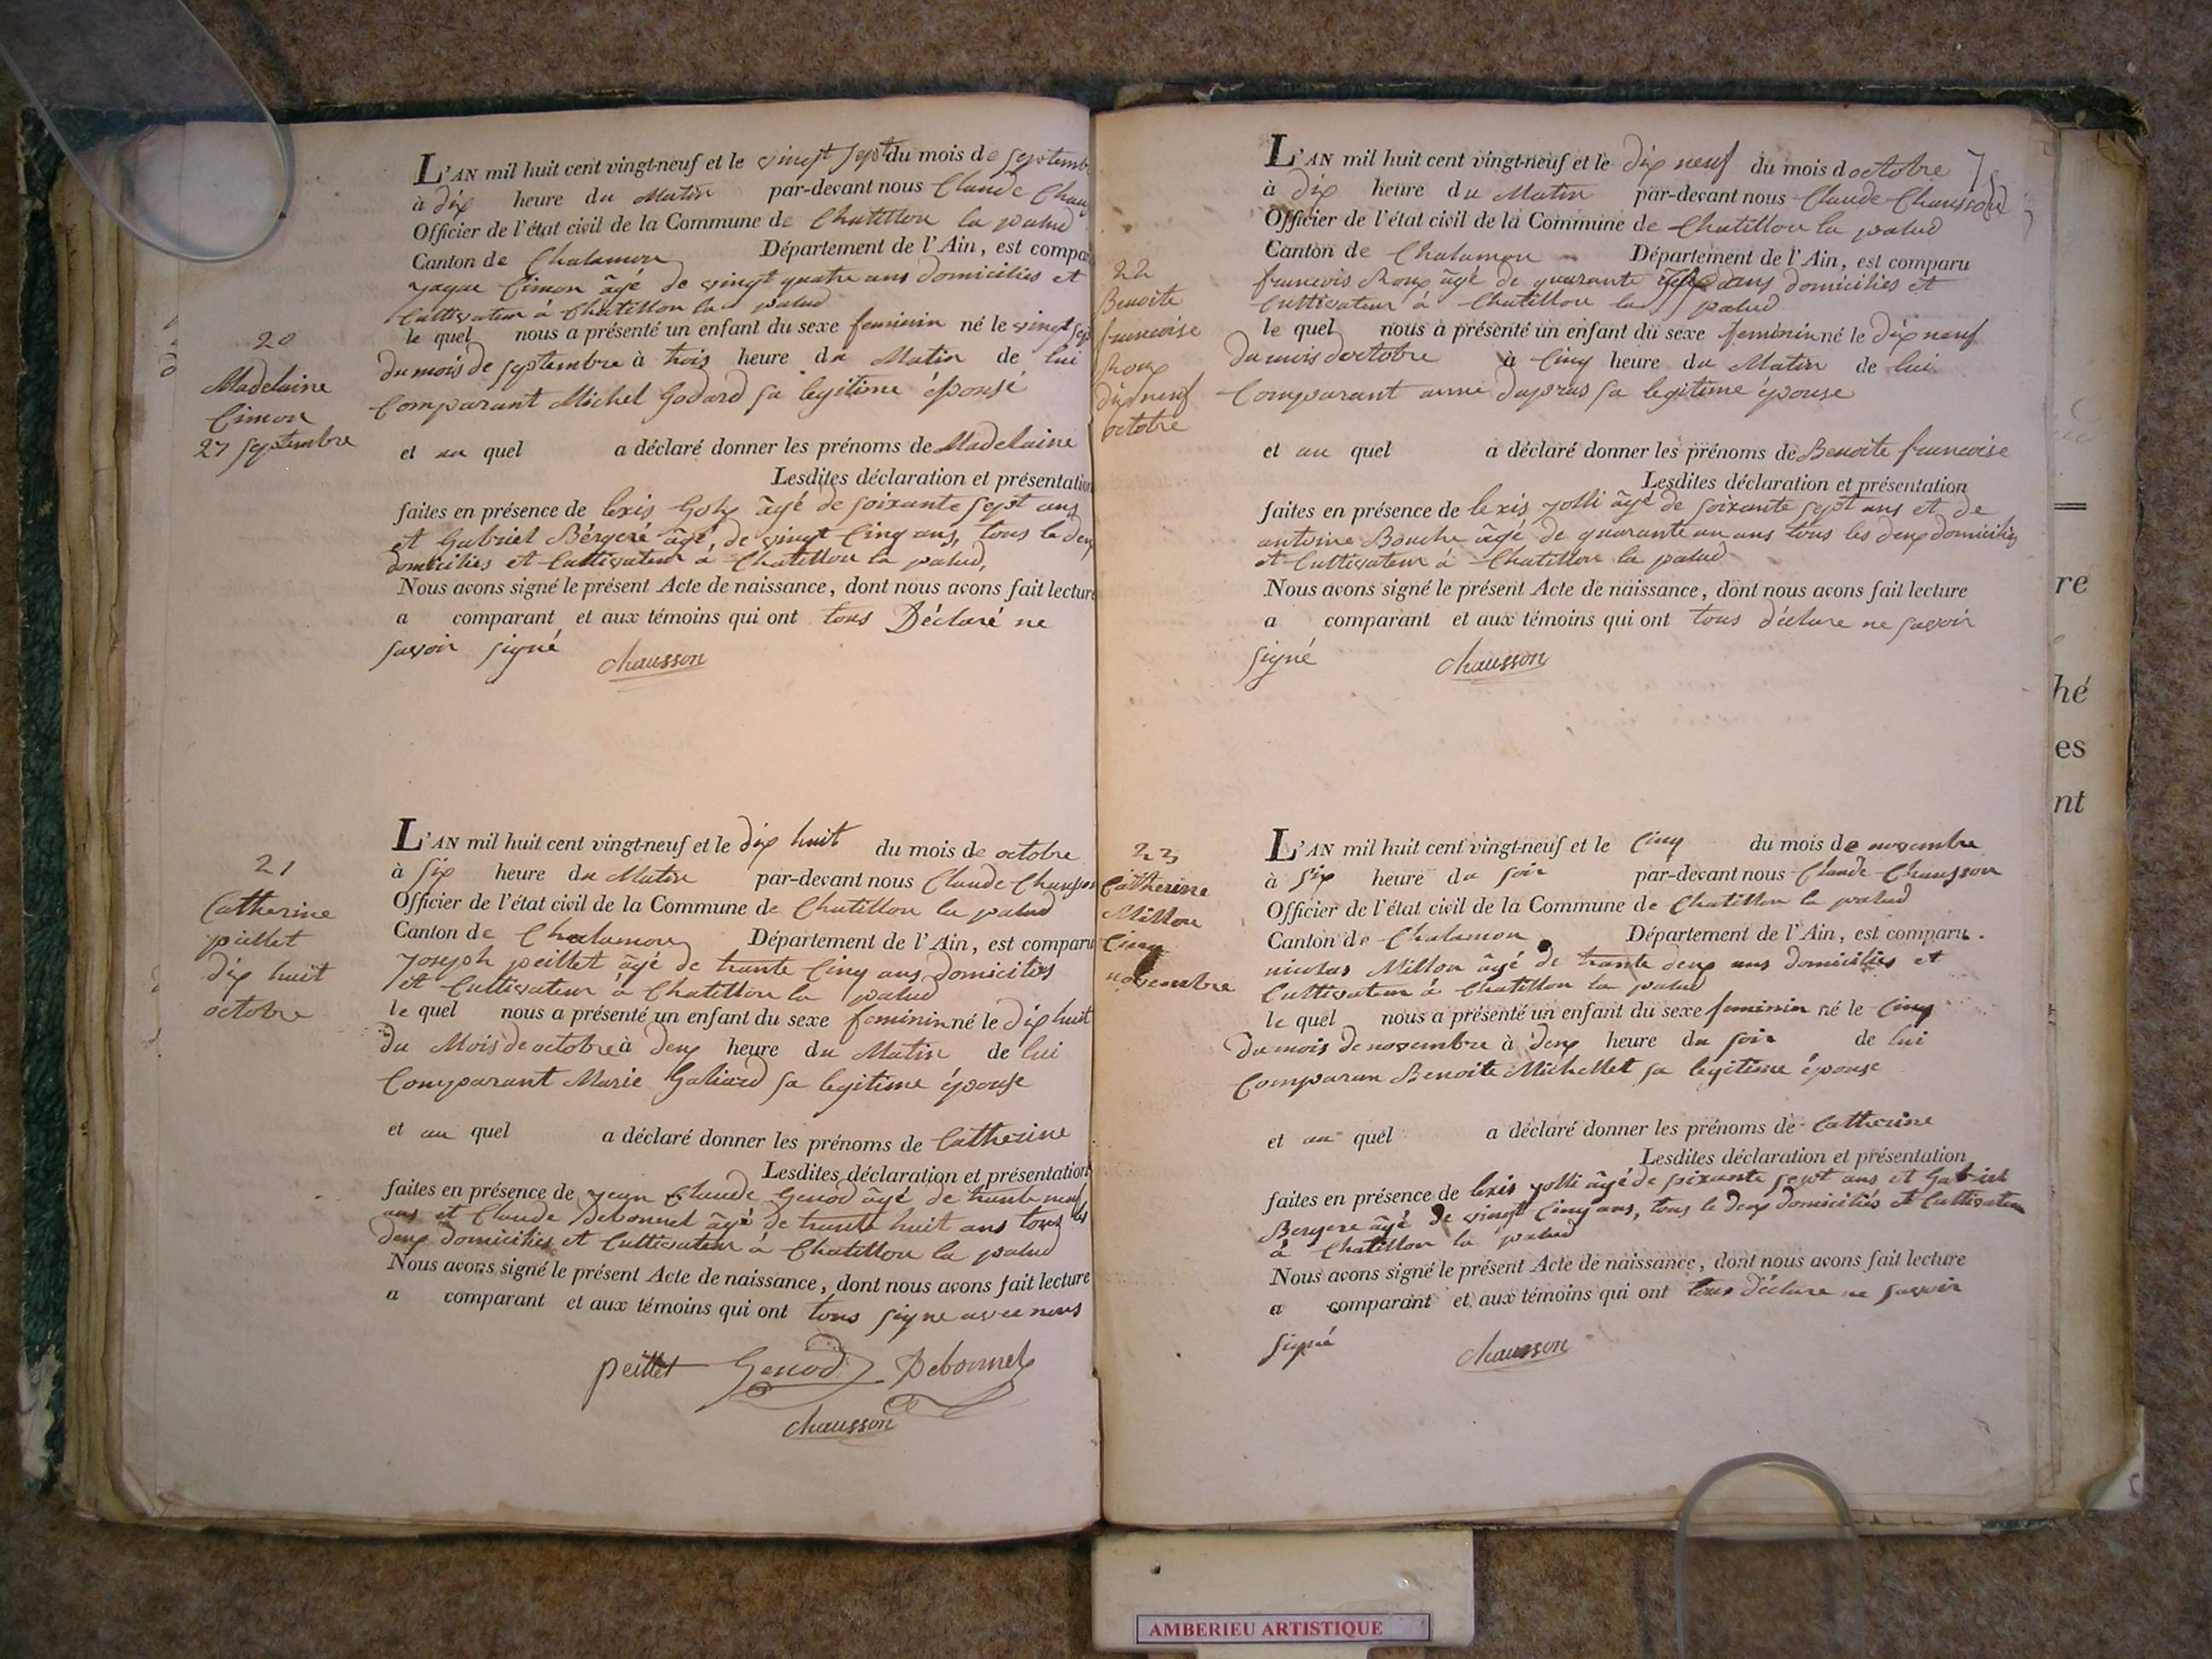 L'AN mil huit cent vingt-neuf et le vingt sept du mois de septemb
à dix heure du Matin par-devant nous Claude Chau
Officier de l'état civil de la Commune de Chatillon la palud
Canton de Chalamon Département de l'Ain, est compa
Cimon âgé de vingt quatre ans domiciliés et
Cultivateur à Chatillon la palud
20
Madelaine
Cimon
27 septembre
le quel nous a présenté un enfant du sexe feminin né le vingt sep
du mois de septembre à trois heure du Matin de lui
Comparant Michel Godard sa legitime épouse
et au quel a déclaré donner les prénoms de Madelaine
Lesdites déclaration et présentation
faites en présence de lexis âgé de soixante sept ans
et Gabriel Bérgeré âgé, de vingt Cinq ans, tous le deux
domiciliés et Cultivateur à Chatillon la palud,
Nous avons signé le présent Acte de naissance, dont nous avons fait lecture
a comparant et aux témoins qui ont tous Déclaré ne
savoir signé chausson
21
Catherine
peillet
dix huit
octobre
L'AN mil huit cent vingt-neuf et le dix huit du mois de octobre
à six heure du Matin par-devant nous Claude Chausson
Officier de l'état civil de la Commune de Chatillon la palud
Canton de Chalamon Département de l'Ain, est comparu
Joseph peillet âgé de trante Cinq ans domiciliés
et Cultivateur à Chatillon la palud
le quel nous a présenté un enfant du sexe feminin né le dix huit
du Mois de octobre à deux heure du Matin de lui
Comparant Marie Galiard sa legitime épouse
et au quel a déclaré donner les prénoms de Catherine
Lesdites déclaration et présentation
faites en présence de jean Claude Genod âgé de trante neuf
ans et Claude Debonnet âgé de trante huit ans tous les
deux domiciliés et Cultivateur à Chatillon la palud
Nous avons signé le présent Acte de naissance, dont nous avons fait lecture
a comparant et aux témoins qui ont tous signe avec nous
peillet Genod Debonnet
chausson
L'AN mil huit cent vingt-neuf et le dix neuf du mois doctobre
à dix heure du Matin par-devant nous Claude Chausson
Officier de l'état civil de la Commune de Chatillon la palud
Canton de Chalamon Département de l'Ain, est comparu
francois Roux âgé de quarante ans domiciliés et
Cultivateur à Chatillon la palud
22
Benoite
francoise
Roux
dix neuf
octobre
le quel nous a présenté un enfant du sexe feminin né le dix neuf
du mois doctobre à Cinq heure du Matin de lui
Comparant anne dupras sa legitime épouse
et au quel a déclaré donner les prénoms de Benoite francoise
Lesdites déclaration et présentation
faites en présence de lexis jolli âgé de soixante sept ans et de
antoine Bouche âgé de quarante un ans tous les deux domiciliés
et Cultivateur à Chatillon la palud
Nous avons signé le présent Acte de naissance, dont nous avons fait lecture
a comparant et aux témoins qui ont tous déclare ne savoir
signé chausson
23
Catherine
Millon
Cinq
novembre
L'AN mil huit cent vingt-neuf et le Cinq du mois de novembre
à six heure du soir par-devant nous Claude Chausson
Officier de l'état civil de la Commune de Chatillon la palud
Canton de Chalamon Département de l'Ain, est comparu.
nicolas Millon âgé de trante deux ans domiciliés et
Cultivateur à Chatillon la palud
le quel nous a présenté un enfant du sexe feminin né le Cinq
du mois de novembre à deux heure du soir de lui
Comparan Benoite Michellet sa legitime épouse
et au quel a déclaré donner les prénoms de Catherine
Lesdites déclaration et présentation
faites en présence de lexis jolli âgé de soixante sept ans et Gabriel
Bergere âgé de vingt Cinq ans, tous le deux domiciliés et Cultivateur
à Chatillon la palud
Nous avons signé le présent Acte de naissance, dont nous avons fait lecture
a comparant et aux témoins qui ont tous déclare ne savoir
signé chausson
re
hé
es
nt
AMBERIEU ARTISTIQUE